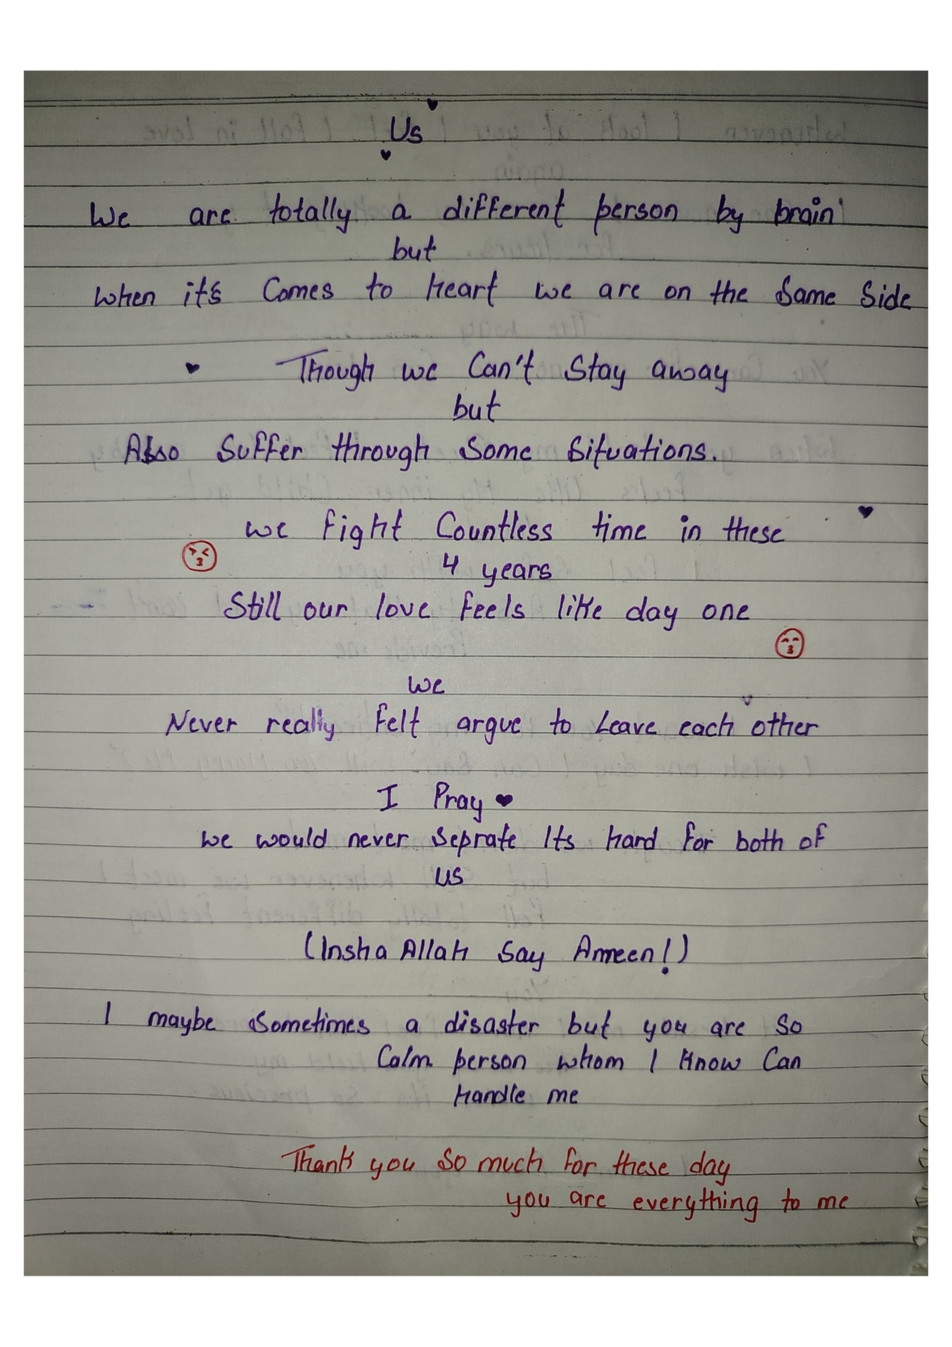 Us
We are totally a different person by brain
but
when it's Comes to heart we are on the Same Side
Though we Can't Stay away
but
Also Suffer through Some Situations.
we fight Countless time in these
4 years
Still our love feels like day one
we
Never really felt argue to Leave each other
I Pray
we would never Seprate Its hard for both of
us
(Insha Allah Say Ameen!)
I maybe Sometimes a disaster but you are So
Calm person whom I Know Can
Handle me
Thank you So much for these day
you are everything to me